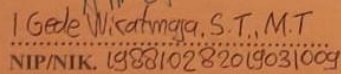 I Gede Wikatmaja, S.T., M.T
NIP/NIK. 198810282019031009